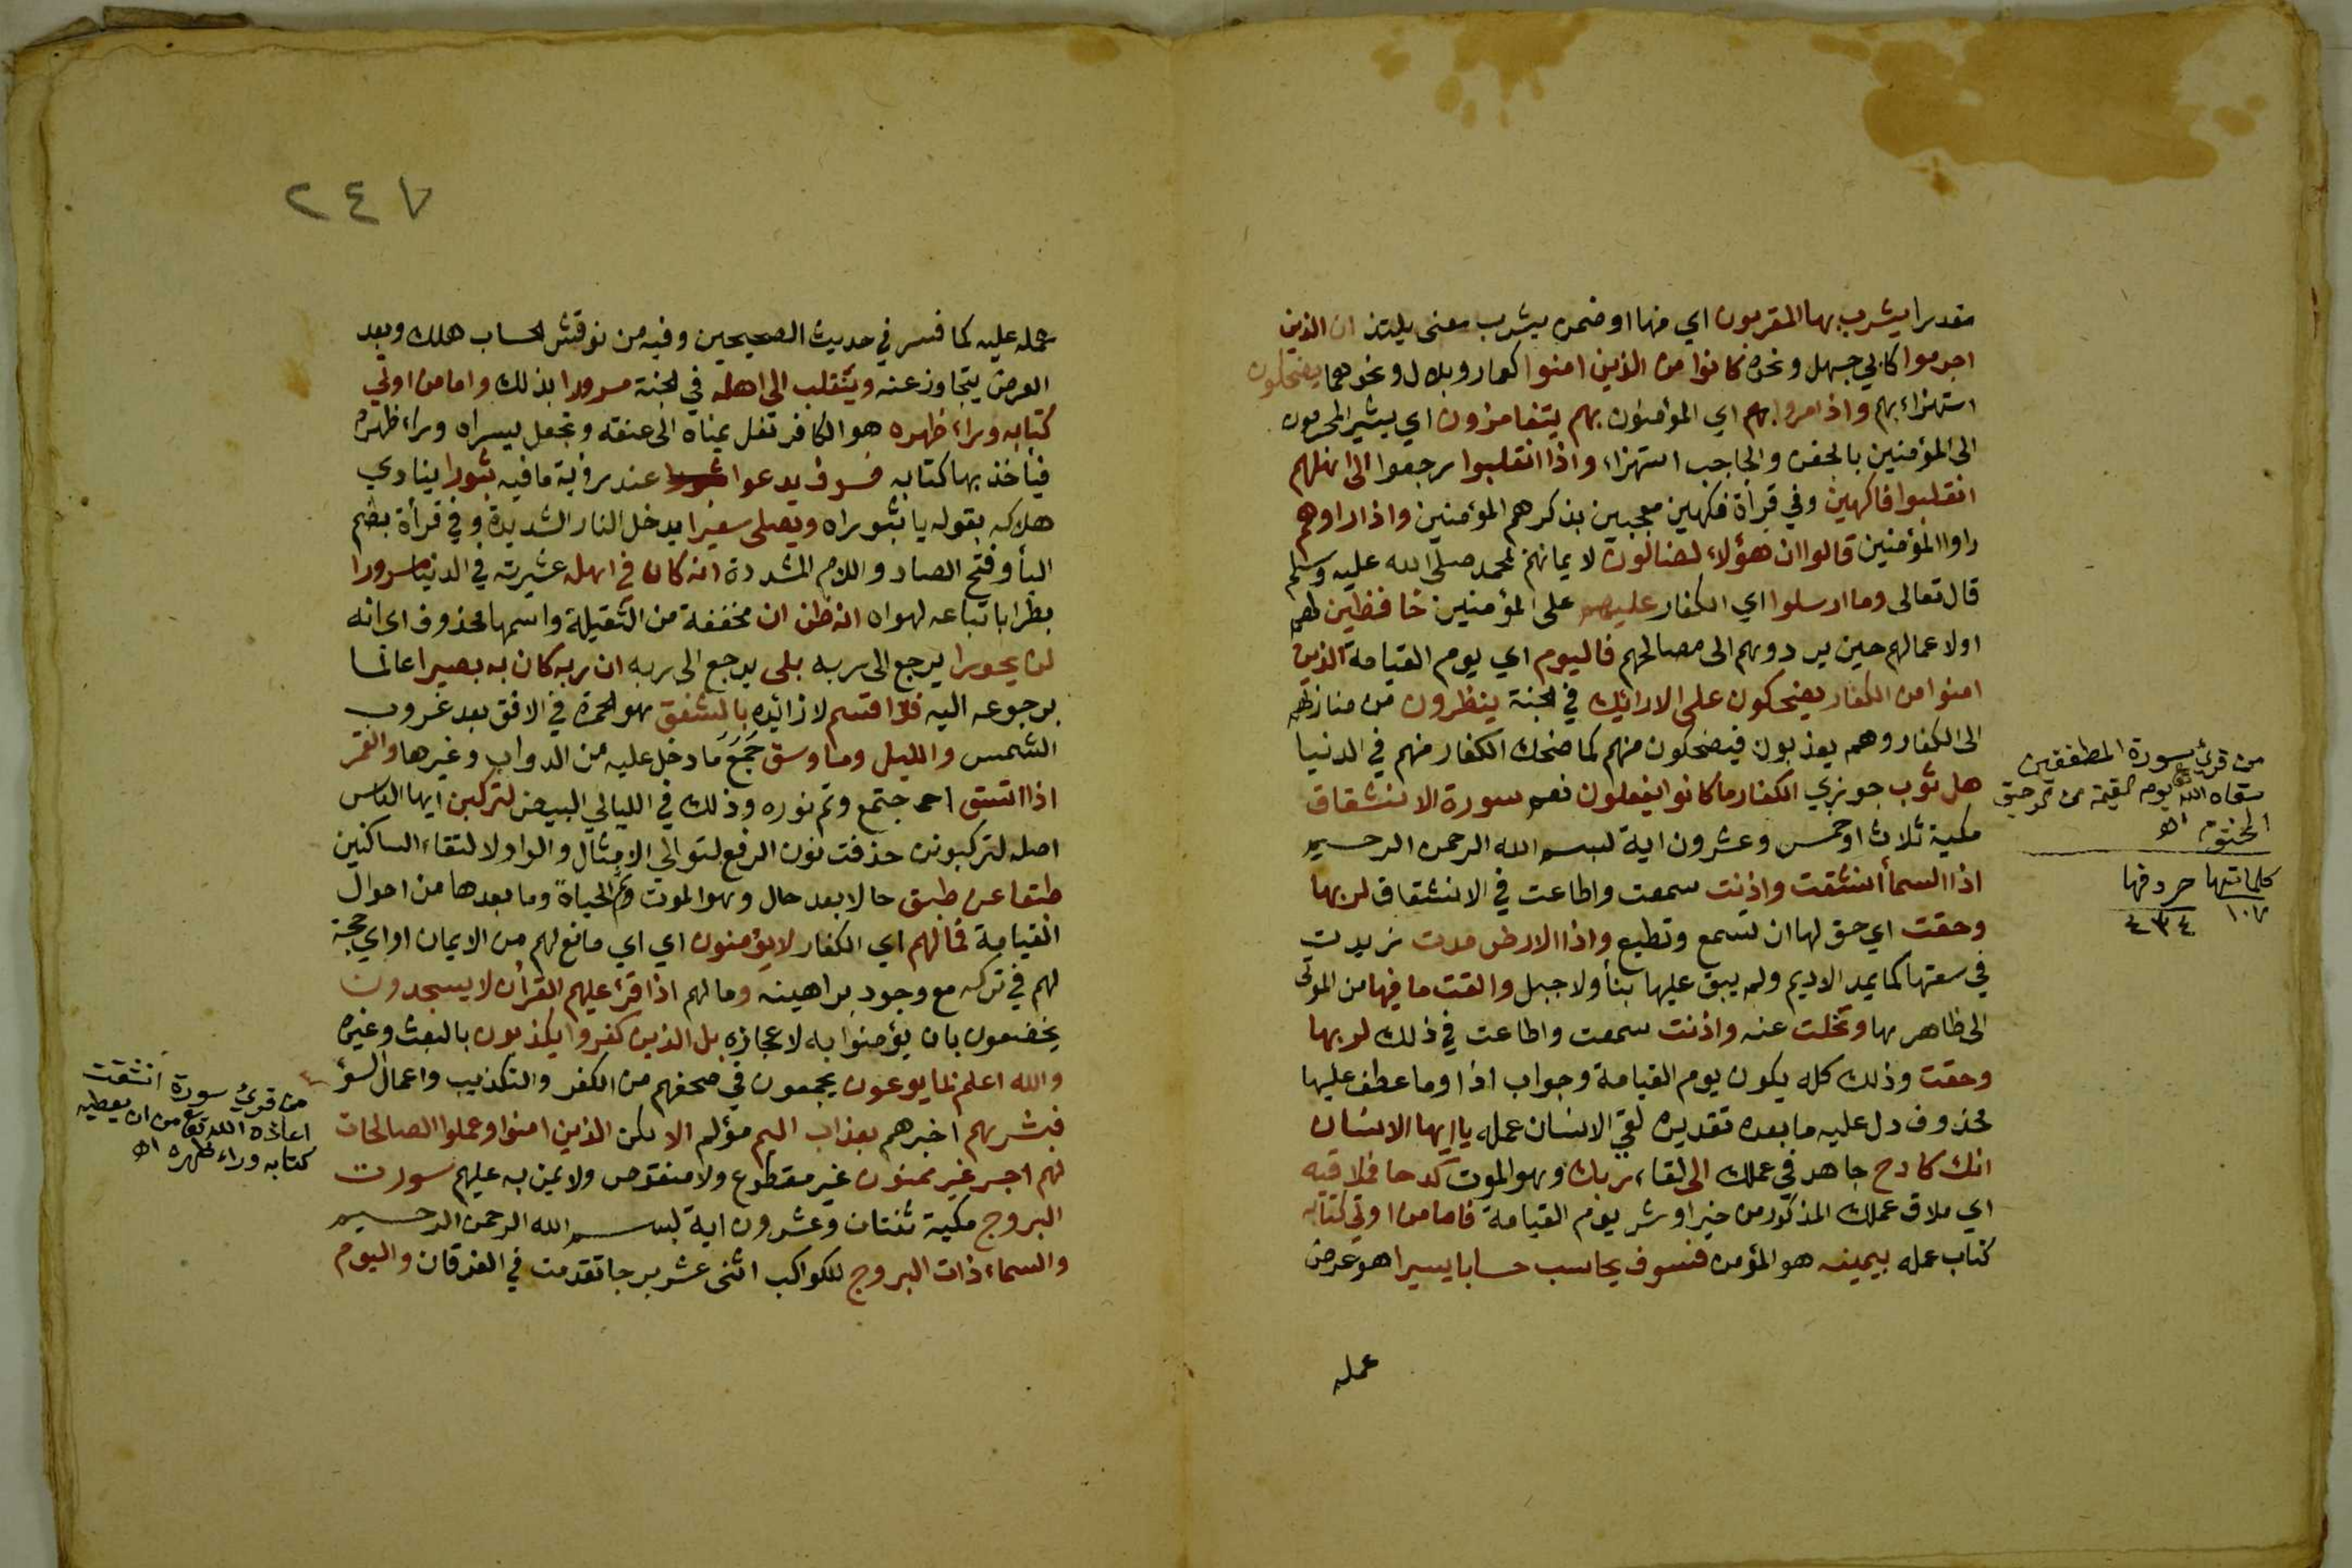 مقدرا يشرب بها المقربون اي منها او ضمن يشرب معنى يلتذ ان الذين
اجرموا كابي جهل ونحوه كانوا من الذين امنوا كعمار وبلال ونحوهما يضحكون
استهزاء بهم واذا مروا بهم اي المؤمنون بهم يتغامزون اي يشير المجرمون
الى المؤمنين بالجفن والحاجب استهزاء واذا انقلبوا رجعوا الى اهلهم
انقلبوا فاكهين وفي قرأة فكهين معجبين بذكرهم المؤمنين واذا راوهم
راوا المؤمنين قالوا ان هؤلاء لضالون لايمانهم بمحمد صلى الله عليه وسلم
قال تعالى وما ارسلوا اي الكفار عليهم على المؤمنين حافظين لهم
اولا عمالهم حين يردوهم الى مصالحهم فاليوم اي يوم القيامة الذين
امنوا من الكفار يضحكون على الارائك في الجنة ينظرون من منازلهم
الى الكفار وهم يعذبون فيضحكون منهم كما ضحك الكفار منهم في الدنيا
هل ثوب جوزي الكفار ما كانوا يفعلون نعم سورة الانشقاق
مكية ثلاث او خمس وعشرون اية بسم الله الرحمن الرحيم
اذا السمأ انشقت واذنت سمعت واطاعت في الانشقاق لربها
وحقت اي حق لها ان تسمع وتطيع واذا الارض مدت زيدت
في سعتها كما يمد الاديم ولم يبق عليها بنأ ولا جبل والقت ما فيها من الموتى
الى ظاهرها وتخلت عنه واذنت سمعت واطاعت في ذلك لربها
وحقت وذلك كله يكون يوم القيامة وجواب اذا وما عطف عليها
محذوف دل عليه ما بعده تقديره لقي الانسان عمله يا ايها الانسان
انك كادح جاهد في عملك الى لقاء ربك وهو الموت كدحا فملاقيه
اي ملاق عملك المذكور من خير او شر يوم القيامة فاما من اوتي كتابه
كتاب عمله بيمينه هو المؤمن فسوف يحاسب حسابا يسيرا هو عرض
عمله
من قرئ سورة المطففين
سقاه الله تع يوم القيمة من الرحيق
المختوم اه
كلماتها حروفها
١٠٧ ٤٣٤
٢٤٧
عمله عليه كما فسر في حديث الصحيحين وفيه من نوقش الحساب هلك وبعد
العرض يتجاوز عنه وينقلب الى اهله في الجنة مسرورا بذلك واما من اوتي
كتابه وراء ظهره هو الكافر تغل يمناه الى عنقه وتجعل يسراه وراء ظهره
فيأخذ بها كتابه فسوف يدعوا عند رؤية ما فيه ثبورا ينادي
هلاكه بقوله يا ثبوراه ويصلى سعيرا يدخل النار الشديدة وفي قرأة بضم
اليأ وفتح الصاد واللام المشددة انه كان في اهله عشيرته في الدنيا مسرورا
بطرا باتباعه لهواه انه ظن ان مخففة من الثقيلة واسمها محذوف اى انه
لن يحورا يرجع الى ربه بلى يرجع الى ربه ان ربه كان به بصيرا عالما
برجوعه اليه فلا اقسم لا زائده بالشفق هو الحمرة في الافق بعد غروب
الشمس والليل وما وسق جمع ما دخل عليه من الدواب وغيرها والقمر
اذا اتسق اجتمع وتم نوره وذلك في الليالي البيض لتركبن ايها الناس
اصله لتركبونن حذفت نون الرفع لتوالي الامثال والواو لالتقاء الساكنين
طبقا عن طبق حالا بعد حال وهو الموت ثم الحياة وما بعدها من احوال
القيامة فمالهم اي الكفار لا يؤمنون اي اي مانع لهم من الايمان او اي حجة
لهم في تركه مع وجود براهينه وما لهم اذا قرأ عليهم القرأن لا يسجدون
يخضعون بان يؤمنوا به لاعجازه بل الذين كفروا يكذبون بالبعث وغيره
والله اعلم بما يوعون يجمعون في صحفهم من الكفر والتكذيب واعمال السؤ
فبشرهم اخبرهم بعذاب اليم مؤلم الا لكن الذين امنوا وعملوا الصالحات
لهم اجر غير ممنون غير مقطوع ولا منقوص ولا يمن به عليهم سورت
البروج مكية ثنتان وعشرون اية بسم الله الرحمن الرحيم
والسماء ذات البروج للكواكب اثنى عشر برجا تقدمت في الفرقان واليوم
من قرئ سورة انشقت
اعاذه الله تع من ان يعطيه
كتابه وراء ظهره اه